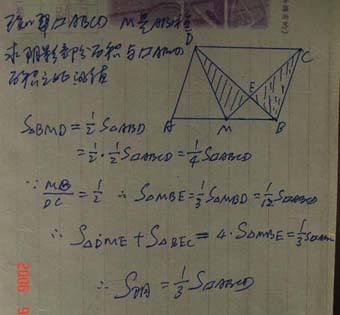 ▱ABCD M是AB中点
求阴影部分面积与▱ABCD
面积之比的值
D
C
E
A
M
B
S△BMD=½S△ABD
=½·½S▱ABCD=¼S▱ABCD
∵MB/DC=½ ∴S△MBE=⅓S△MBD=1/12S▱ABCD
∴S△DME+S△BEC=4·S△MBE=⅓S▱ABCD
∴S阴=⅓S▱ABCD
2006 9